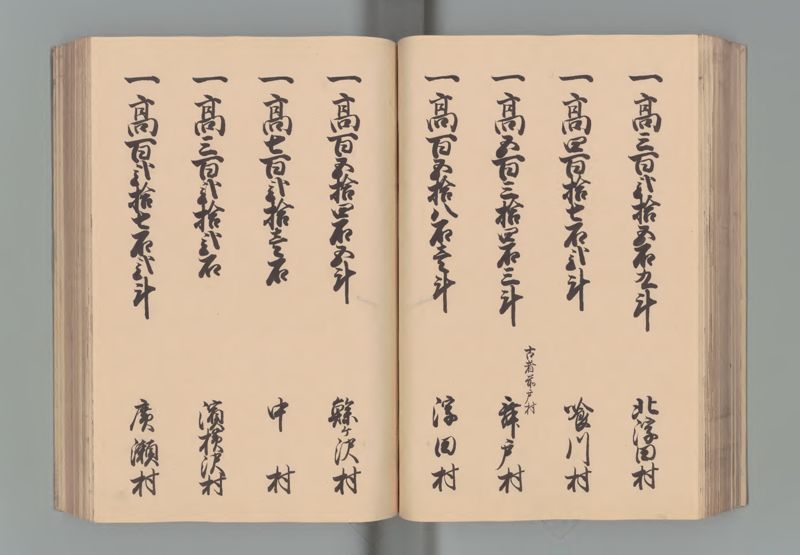 一高三百弐拾五石九斗 北浮田村
一高四百拾七石弐斗 喰川村
古者前戸村
一高五百三拾四石三斗 舞戸村
一高百五拾八石壱斗 浮田村
一高百五拾四石五斗 鯵ヶ沢村
一高七百弐拾壱石 中村
一高三百弐拾弐石 濱横沢村
一高百弐拾七石弐斗 廣瀬村